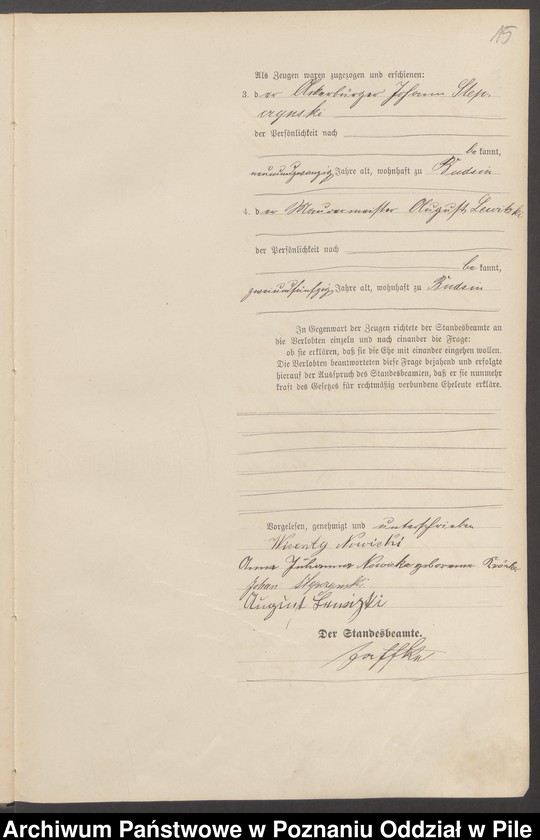 15
Als Zeugen waren zugezogen und erschienen:
3. der Ackerbürger Johann Step-
czynski
der Persönlichkeit nach
bekannt,
neunundzwanzig Jahre alt, wohnhaft zu Budsin
4. der Maurermeister August Lewitzki
der Persönlichkeit nach
bekannt,
zweiundfünfzig Jahre alt, wohnhaft zu Budsin
In Gegenwart der Zeugen richtete der Standesbeamte an
die Verlobten einzeln und nach einander die Frage:
ob sie erklären, daß sie die Ehe mit einander eingehen wollen.
Die Verlobten beantworteten diese Frage bejahend und erfolgte
hierauf der Ausspruch des Standesbeamten, daß er sie nunmehr
kraft des Gesetzes für rechtmäßig verbundene Eheleute erkläre.
Vorgelesen, genehmigt und unterschrieben
Wicenty Nowicki
Anna Juhanna Nowicka geborene
Johan
August
Der Standesbeamte.
Jaffke
Archiwum Państwowe w Poznaniu Oddział w Pile